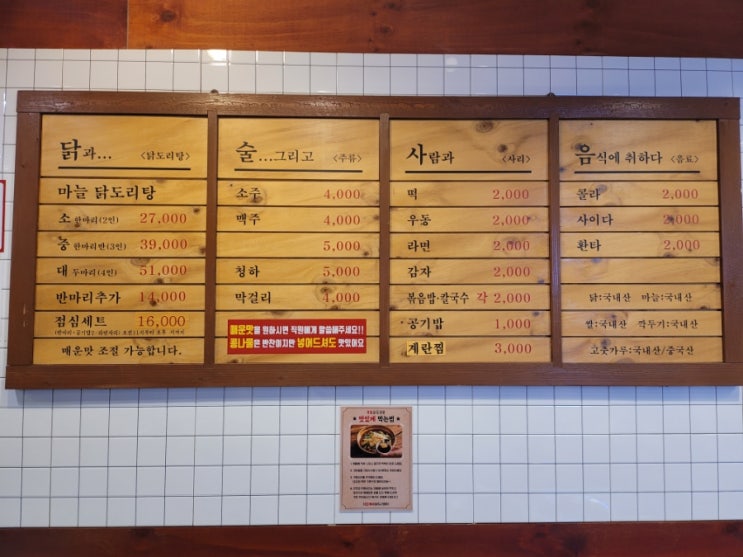 닭과... <닭도리탕>
마늘 닭도리탕
소 한마리(2인) 27,000
중 한마리반(3인) 39,000
대 두마리(4인) 51,000
반마리추가 14,000
점심세트 16,000
매운맛 조절 가능합니다.
술...그리고 <주류>
소주 4,000
맥주 4,000
5,000
청하 5,000
막걸리 4,000
매운맛을 원하시면 직원에게 말씀해주세요!!
콩나물은 반찬이지만 넣어드셔도 맛있어요
사람과 <사리>
떡 2,000
우동 2,000
라면 2,000
감자 2,000
볶음밥·칼국수 각 2,000
공기밥 1,000
계란찜 3,000
음식에 취하다 <음료>
콜라 2,000
사이다 2,000
환타 2,000
닭:국내산 마늘:국내산
쌀:국내산 깍두기:국내산
고춧가루:국내산/중국산
★ 맛있게 먹는법 ★